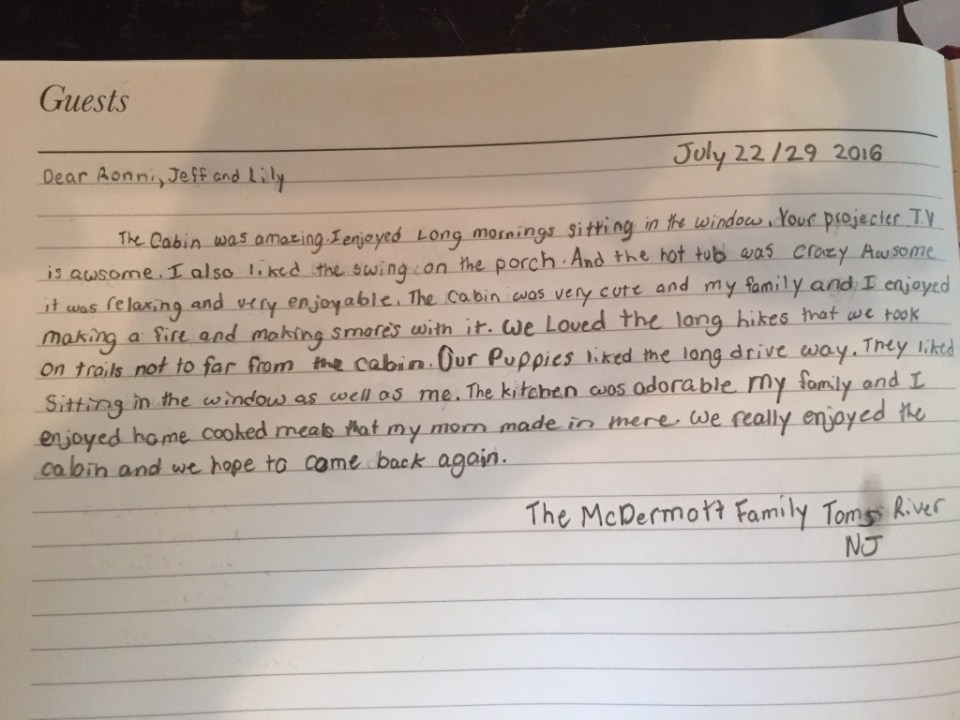 Guests
July 22/29 2016
Dear Ronni, Jeff and Lily
The Cabin was amazing. I enjoyed Long mornings sitting in the window. Your projecter T.V
is awsome. I also liked the swing on the porch. And the hot tub was crazy Awsome
it was relaxing and very enjoyable. The cabin was very cute and my family and I enjoyed
making a fire and making smore's with it. We Loved the long hikes that we took
on trails not to far from the cabin. Our Puppies liked the long drive way. They liked
Sitting in the window as well as me. The kitchen was adorable my family and I
enjoyed home cooked meals that my mom made in there. We really enjoyed the
cabin and we hope to come back again.
The McDermott Family Toms River
NJ